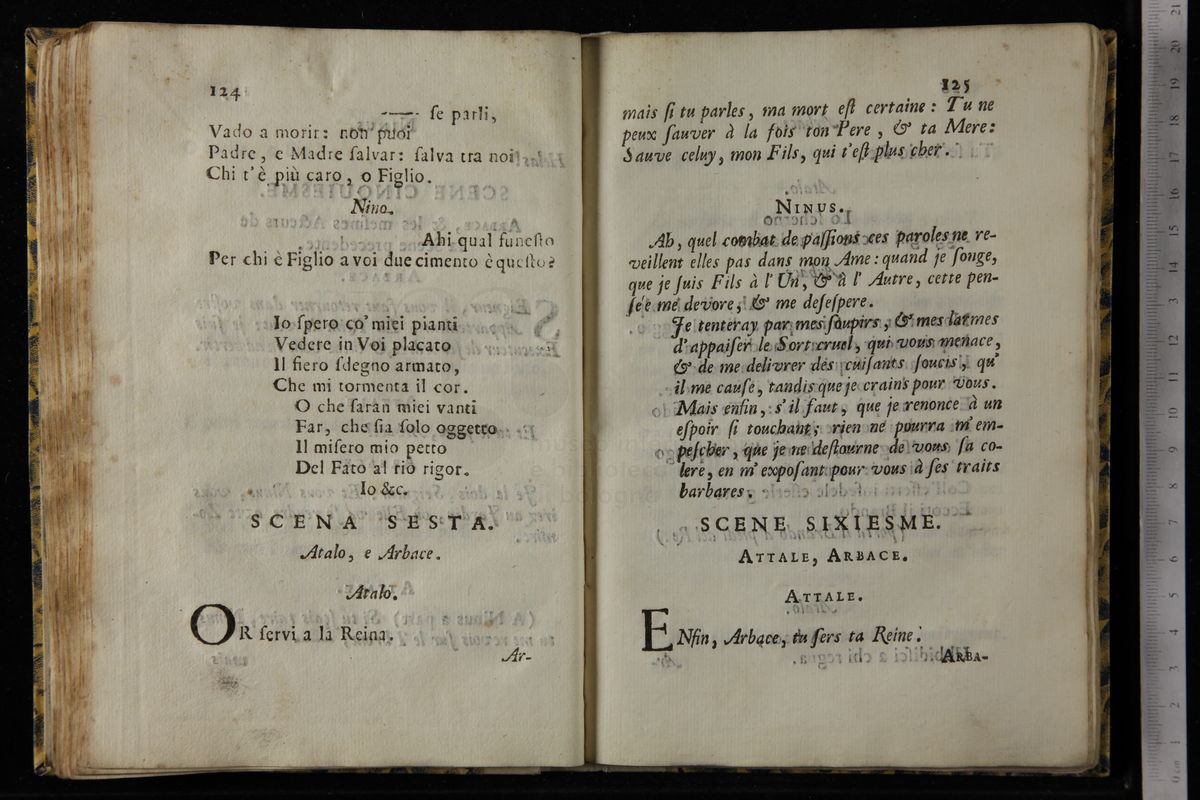 124
—— ſe parli,
Vado a morir: non puoi
Padre, e Madre ſalvar: ſalva tra noi
Chi t'è più caro, o Figlio.
Nino.
Ahi qual funeſto
Per chi è Figlio a voi due cimento è queſto?
Io ſpero co' miei pianti
Vedere in Voi placato
Il fiero ſdegno armato,
Che mi tormenta il cor.
O che ſaran miei vanti
Far, che ſia ſolo oggetto
Il miſero mio petto
Del Fato al rio rigor.
Io &c.
SCENA SESTA.
Atalo, e Arbace.
Atalo.
OR ſervi a la Reina.
Ar-
125
mais ſi tu parles, ma mort eſt certaine: Tu ne
peux ſauver à la fois ton Pere, & ta Mere:
Sauve celuy, mon Fils, qui t'eſt plus cher.
NINUS.
Ah, quel combat de paſſions ces paroles ne re-
veillent elles pas dans mon Ame: quand je ſonge,
que je ſuis Fils à l'Un, & à l'Autre, cette pen-
ſée me devore, & me deſeſpere.
Je tenteray par mes ſoupirs, & mes larmes
d'appaiſer le Sort cruel, qui vous menace,
& de me delivrer des cuiſants ſoucis, qu'
il me cauſe, tandis que je crains pour vous.
Mais enfin, s'il faut, que je renonce à un
eſpoir ſi touchant; rien ne pourra m'em-
peſcher, que je ne deſtourne de vous ſa co-
lere, en m'expoſant pour vous à ſes traits
barbares.
SCENE SIXIESME.
ATTALE, ARBACE.
ATTALE.
ENfin, Arbace, tu ſers ta Reine.
ARBA-